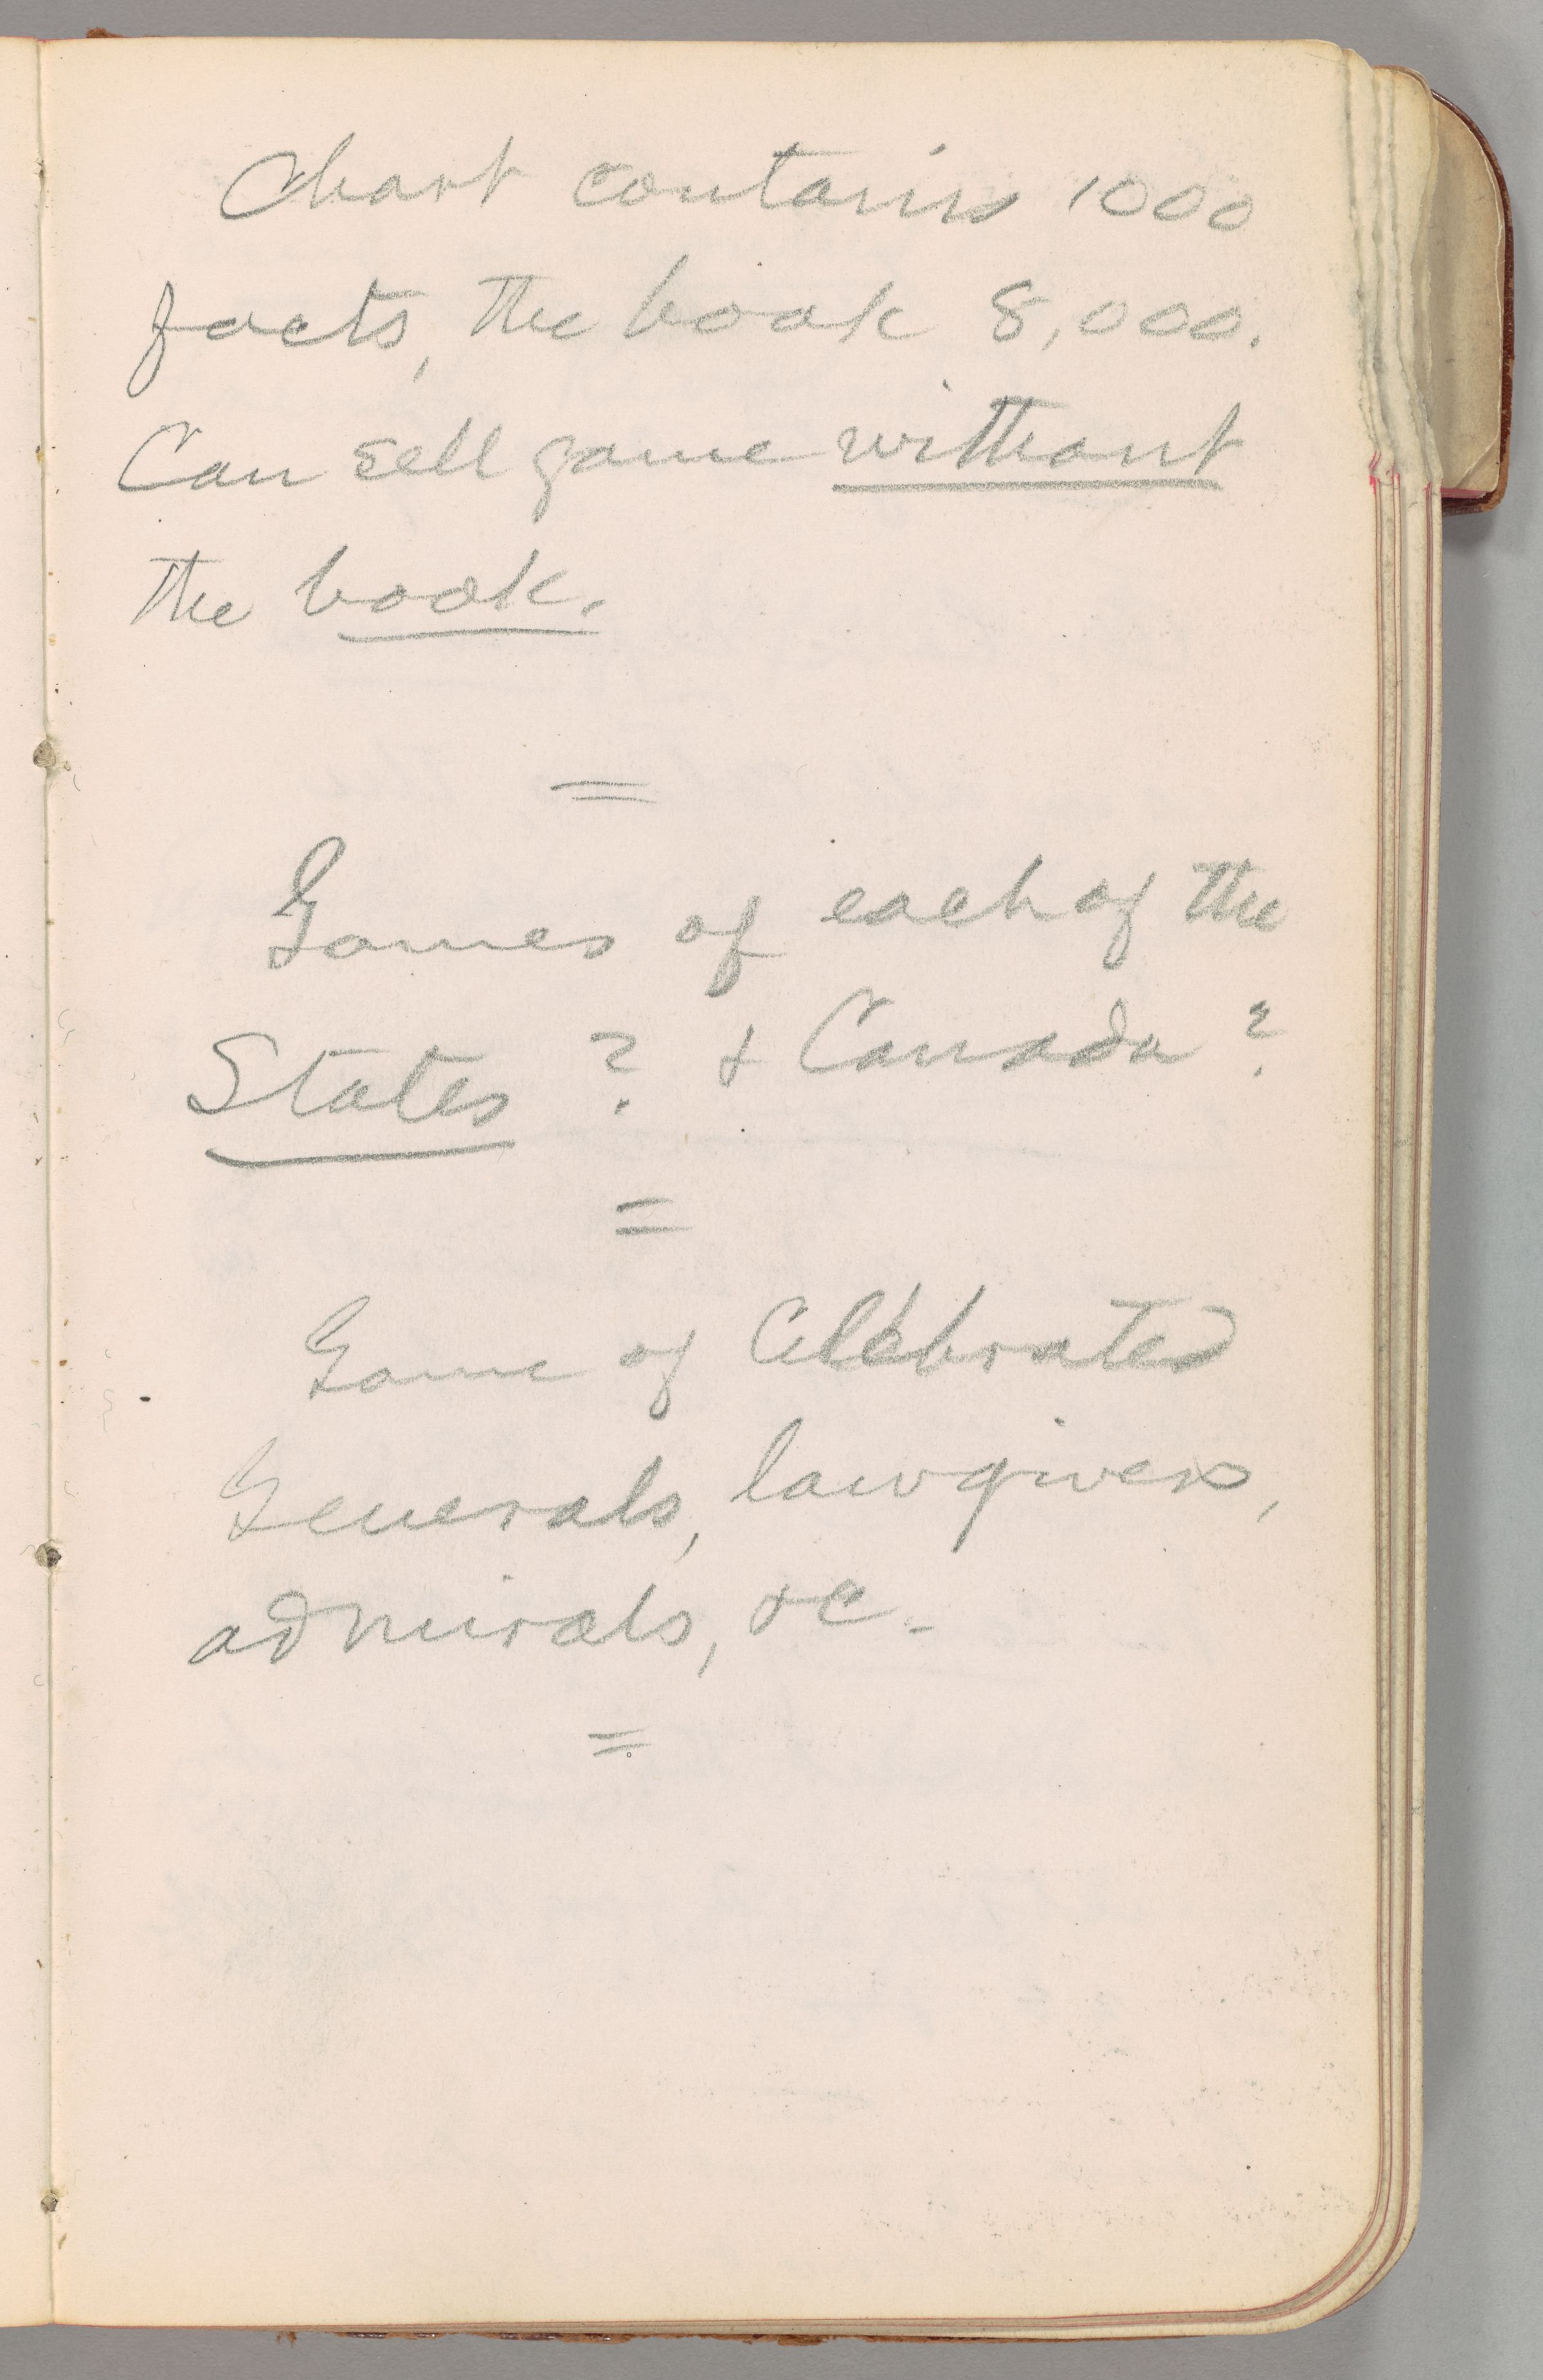 Chart contains 1000
facts, the book 8,000.
Can sell game without
the book.
=
Games of each of the
States? & Canada?
=
Game of Celebrated
Generals, lawgivers,
admirals, &c.
=